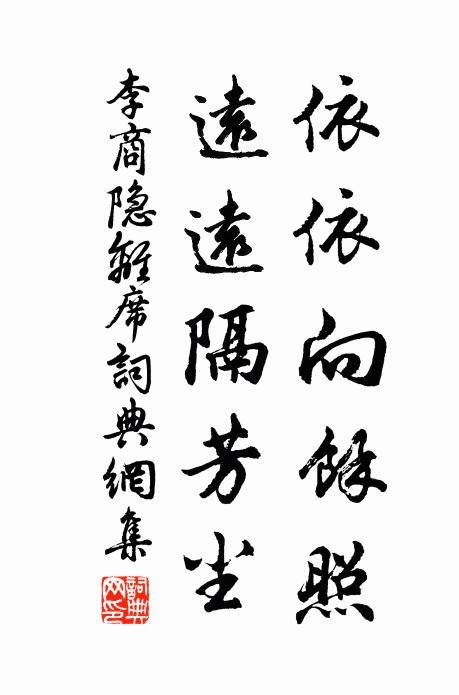 依依向餘照
遠遠隔芳尘
李商隐離席詞典網集
詞典网印